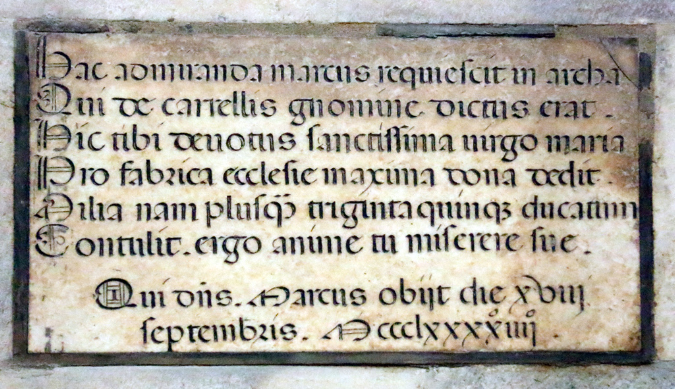 Hac admiranda marcus requiescit in archa
Qui de carrellis gnomine dictus erat.
Hic tibi deuotus sanctissima uirgo maria
Pro fabrica ecclesie maxima dona dedit.
Milia nam plusq̄ triginta quinqꝫ ducatum
Contulit. ergo anime tu miserere sue.
Qui dn̄s. Marcus obijt die xviij
septembris. Mccclxxxxiiij